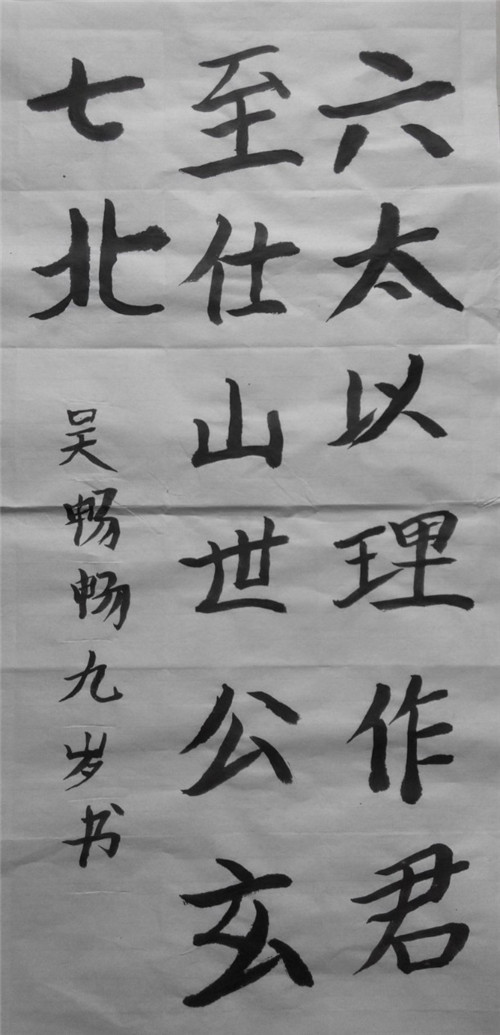 六太以理作君
至仕山世公玄
七北
吴畅畅九岁书